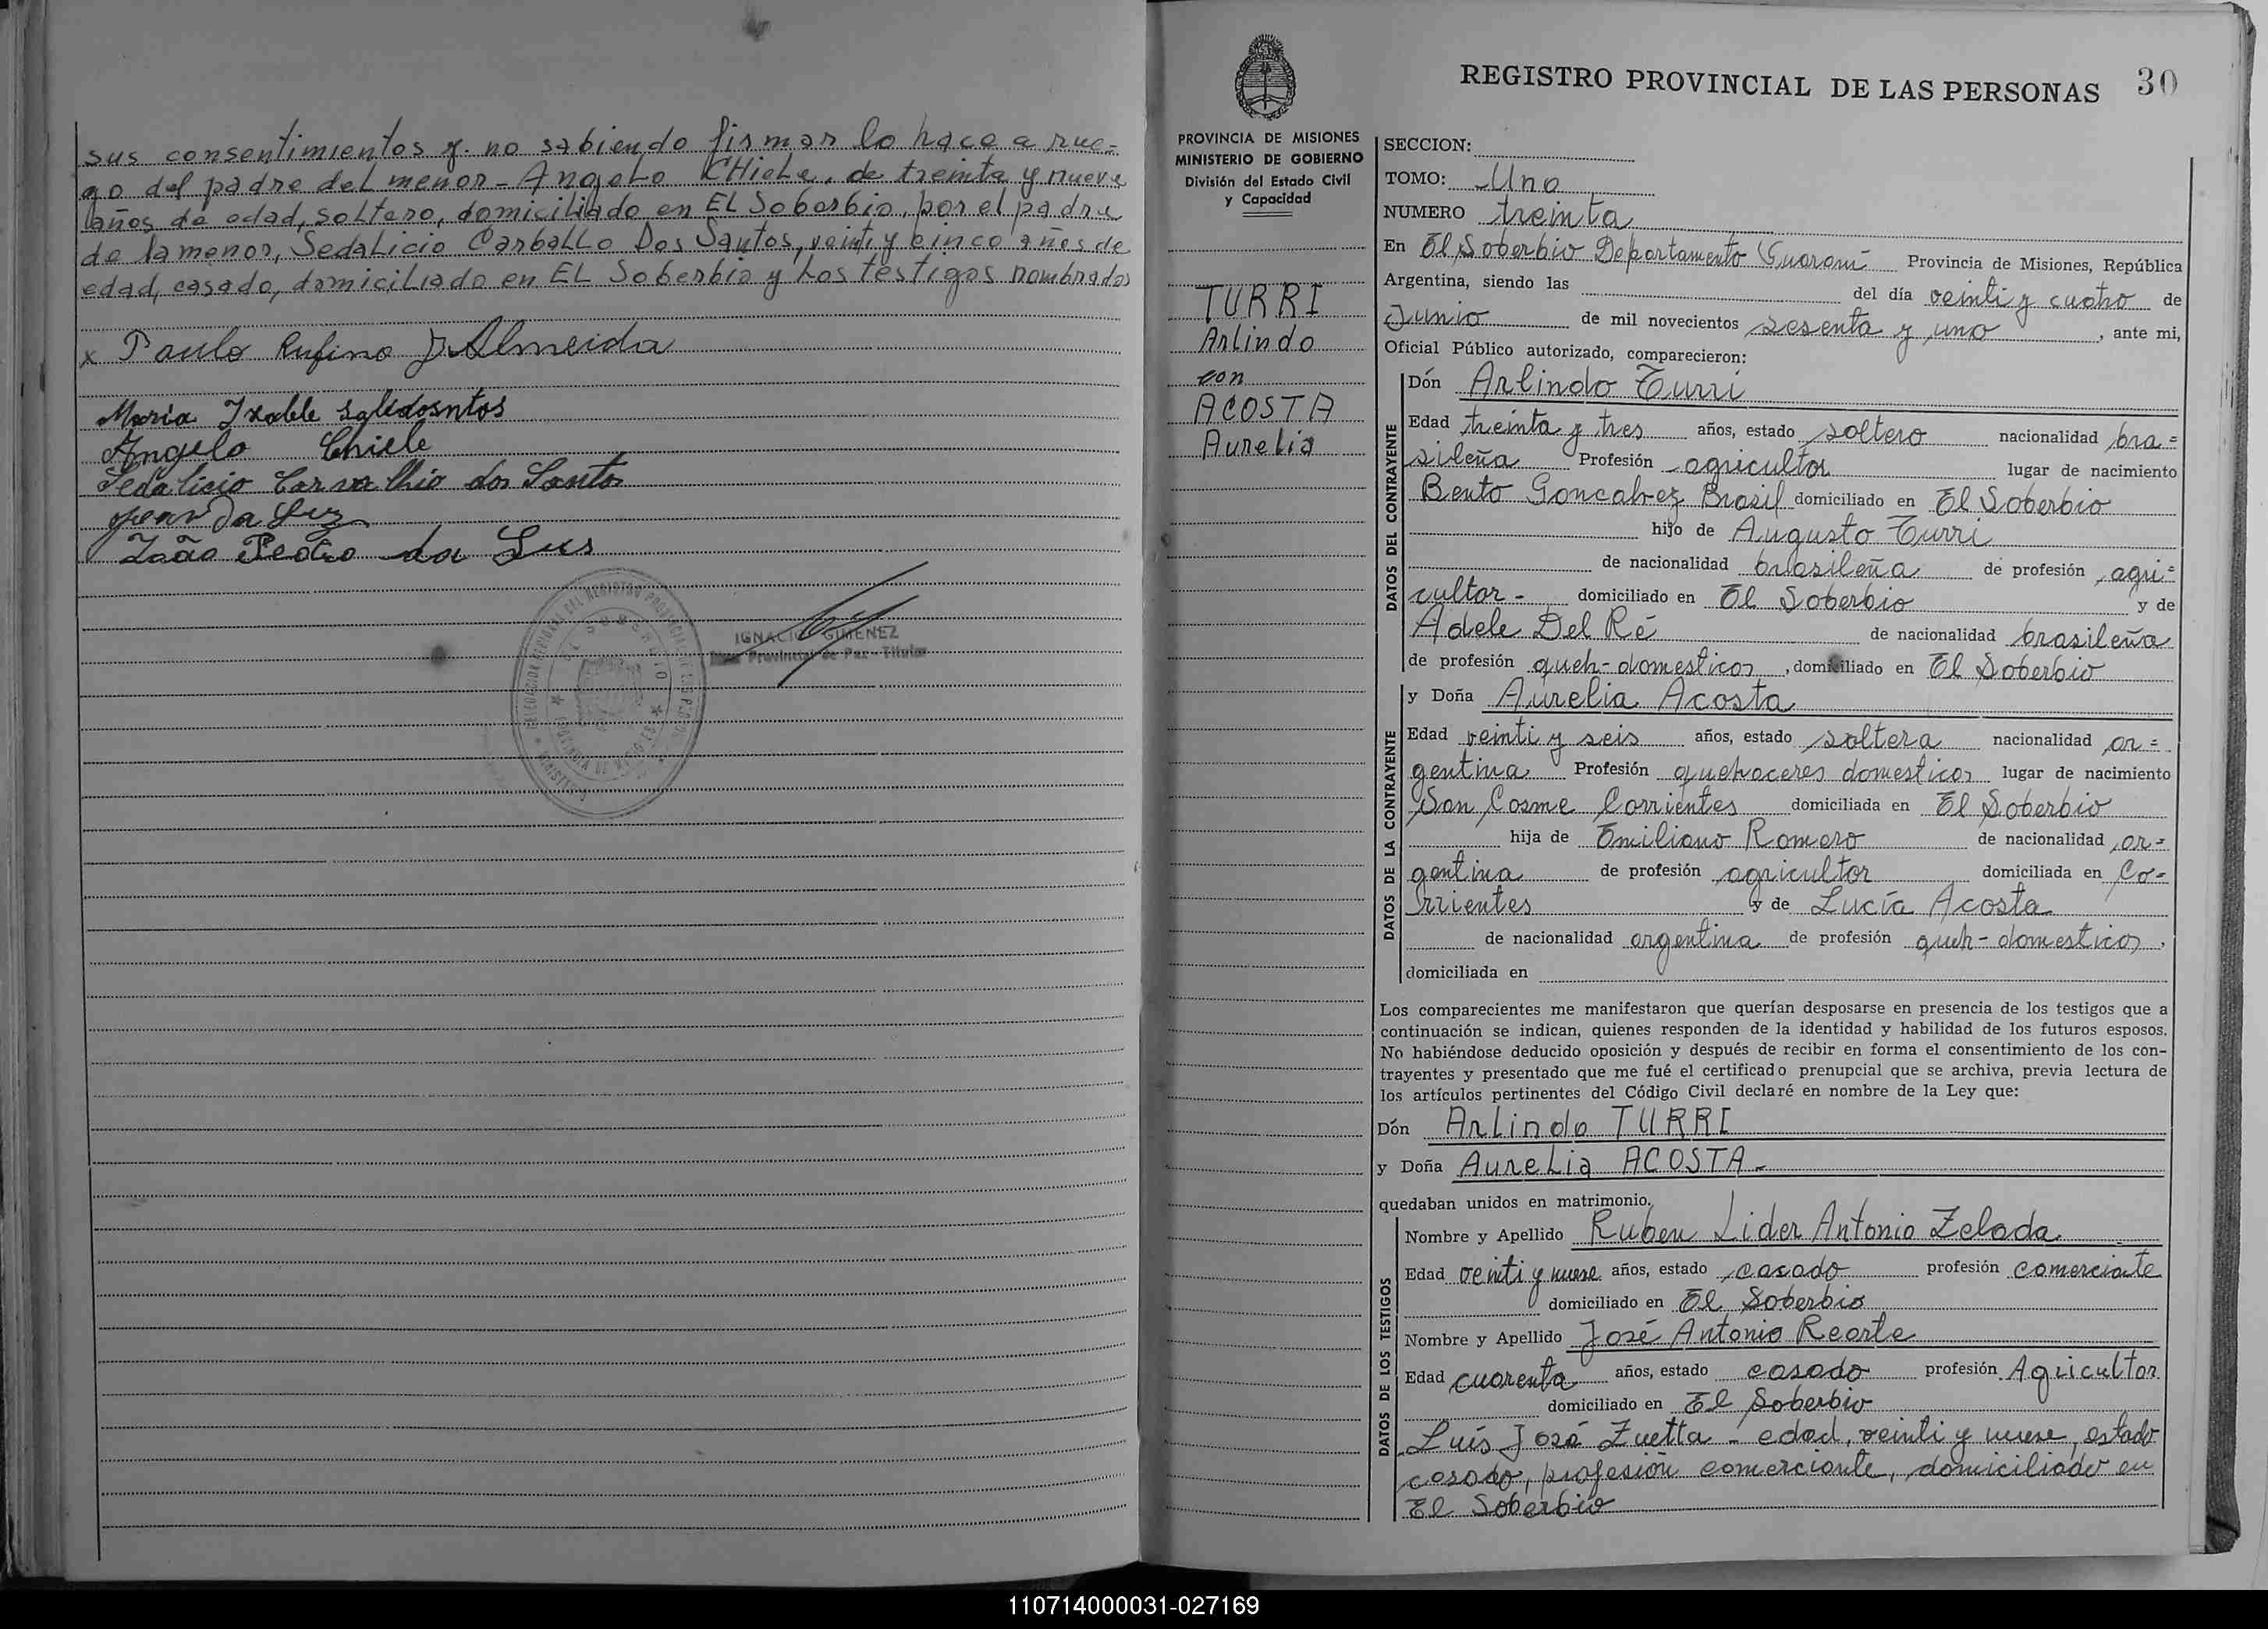 sus consentimientos y no sabiendo firmar lo hace a rue=
go del padre del menor - Angelo CHiele, de treinta y nueve
años de edad, soltero, domiciliado en EL Soberbio, por el padre
de la menor, Sedalicio Carballo Dos Santos, veinti y cinco años de
edad, casado, domiciliado en EL Soberbio y los testigos nombrados
x Paulo Rufino D Almeida
Maria Yxabele salidosntos
Angelo Chiele
Sedalicio Carvalhio dos Santos
Da Luz
João Pedro da Lus
IGNACIO GIMENEZ
Provincial de Paz - Titular
REGISTRO PROVINCIAL DE LAS PERSONAS 30
PROVINCIA DE MISIONES
MINISTERIO DE GOBIERNO
División del Estado Civil
y Capacidad
TURRI
Arlindo
con
ACOSTA
Aurelia
SECCION:
TOMO: Uno
NUMERO treinta
En El Soberbio Departamento Guaraní Provincia de Misiones, República
Argentina, siendo las del día veinti y cuatro de
Junio de mil novecientos sesenta y uno, ante mi,
Oficial Público autorizado, comparecieron:
DATOS DEL CONTRAYENTE
Dón Arlindo Turri
Edad treinta y tres años, estado soltero nacionalidad bra=
sileña Profesión agricultor lugar de nacimiento
Bento Goncalvez Brasil domiciliado en El Soberbio
hijo de Augusto Turri
de nacionalidad brasileña de profesión agri=
cultor - domiciliado en El Soberbio y de
Adele Del Ré de nacionalidad brasileña
de profesión queh-domesticos, domiciliado en El Soberbio
DATOS DE LA CONTRAYENTE
y Doña Aurelia Acosta
Edad veinti y seis años, estado soltera nacionalidad ar=
gentina Profesión quehaceres domesticos lugar de nacimiento
San Cosme Corrientes domiciliada en El Soberbio
hija de Emiliano Romero de nacionalidad ar=
gentina de profesión agricultor domiciliada en Co=
rrientes y de Lucía Acosta
de nacionalidad argentina de profesión queh-domesticos,
domiciliada en
Los comparecientes me manifestaron que querían desposarse en presencia de los testigos que a
continuación se indican, quienes responden de la identidad y habilidad de los futuros esposos.
No habiéndose deducido oposición y después de recibir en forma el consentimiento de los con-
trayentes y presentado que me fué el certificado prenupcial que se archiva, previa lectura de
los artículos pertinentes del Código Civil declaré en nombre de la Ley que:
Dón Arlindo TURRI
y Doña Aurelia ACOSTA-
quedaban unidos en matrimonio.
DATOS DE LOS TESTIGOS
Nombre y Apellido Ruben Lider Antonio Zelada
Edad veinti y nueve años, estado casado profesión comerciante
domiciliado en El Soberbio
Nombre y Apellido José Antonio Rearte
Edad cuarenta años, estado casado profesión Agricultor
domiciliado en El Soberbio
Luís José Zuetta - edad, veinti y nueve, estado
casado, profesión comerciante, domiciliado en
El Soberbio
110714000031-027169